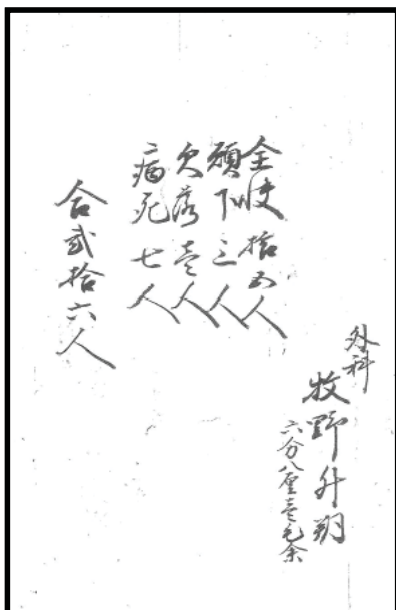 外科
牧野升朔
六分八厘壱毛余
全快拾五人
願下三人
欠落壱人
病死七人
合弐拾六人